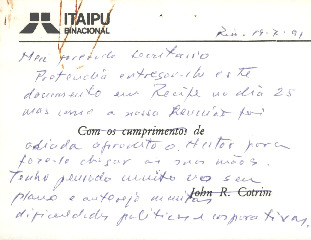 ITAIPU
BINACIONAL
Rio, 19.7.91
Meu prezado Secretario
Pretendia entregar-lhe este
documento em Recife no dia 25
mas como a nossa Reunião foi
Com os cumprimentos de
adiada aproveito o Heitor para
faze-lo chegar as suas mãos.
Tenho pensado muito no seu
John R. Cotrim
plano e antevejo muitas
dificuldades politicas e corporativas.